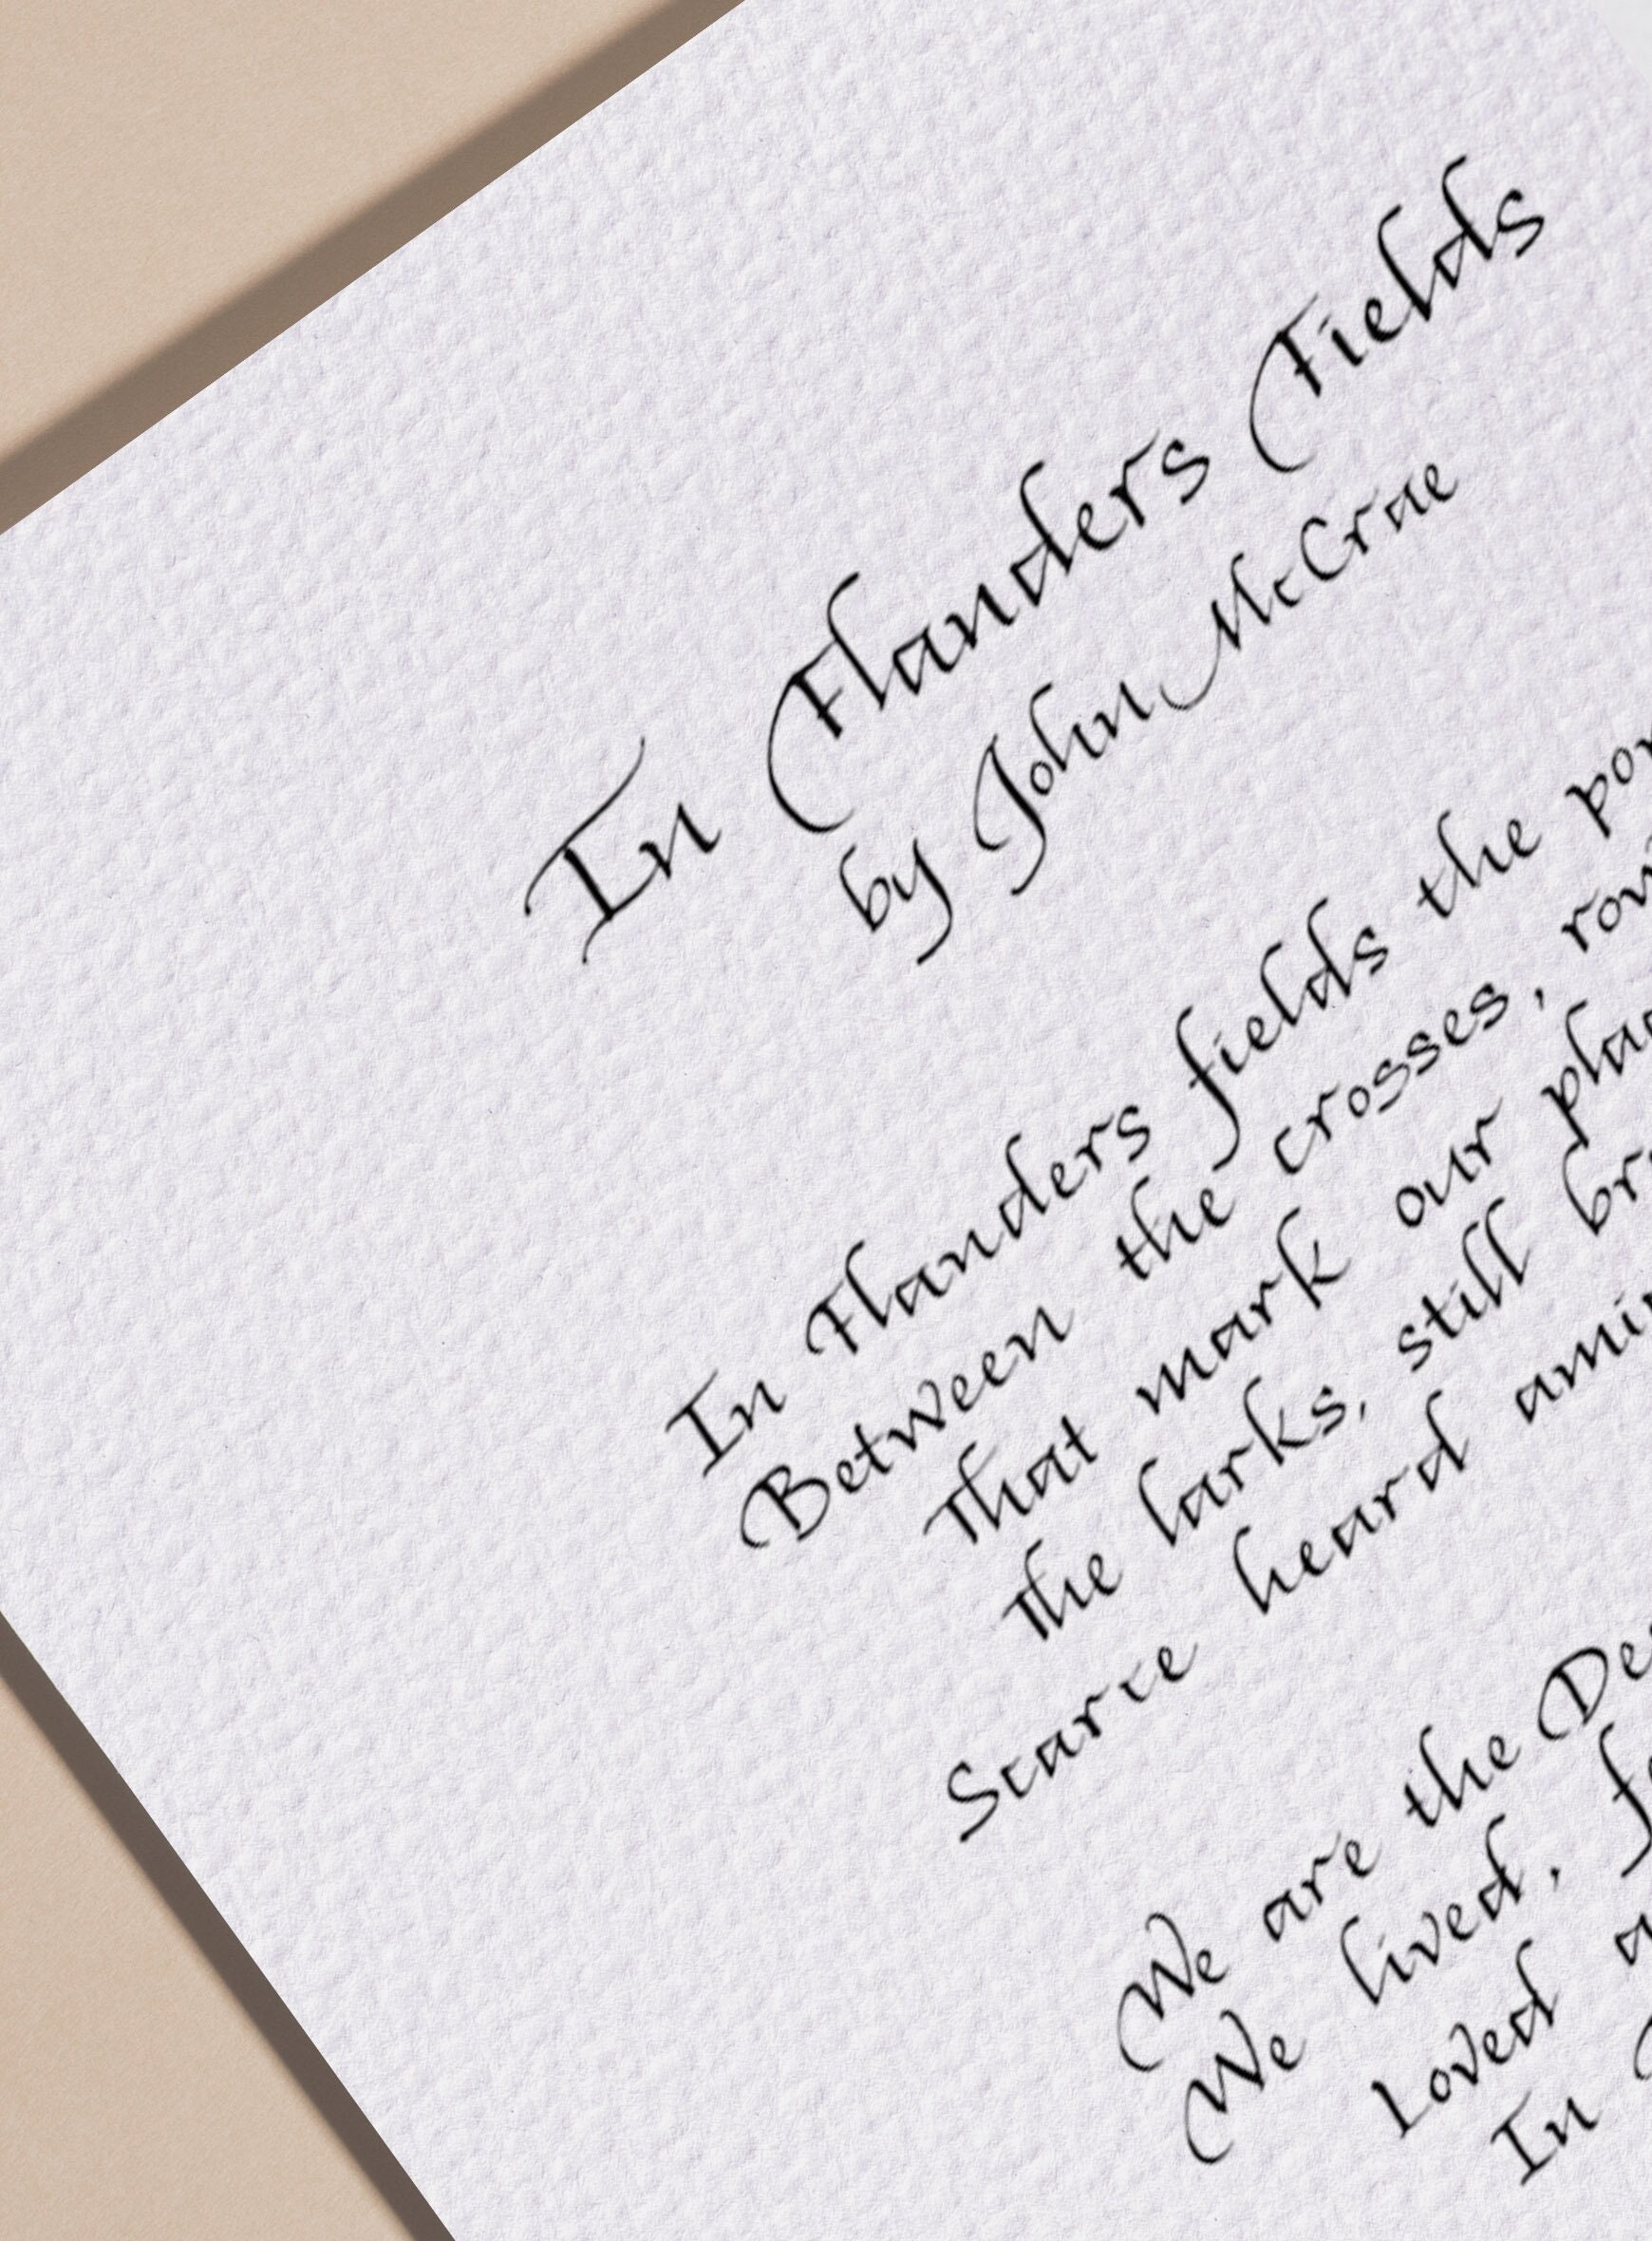 In Flanders Fields
by John McCrae
In Flanders fields the
Between the crosses,
That mark our
The larks, still
Scarce heard
We are the
We lived,
Loved
In